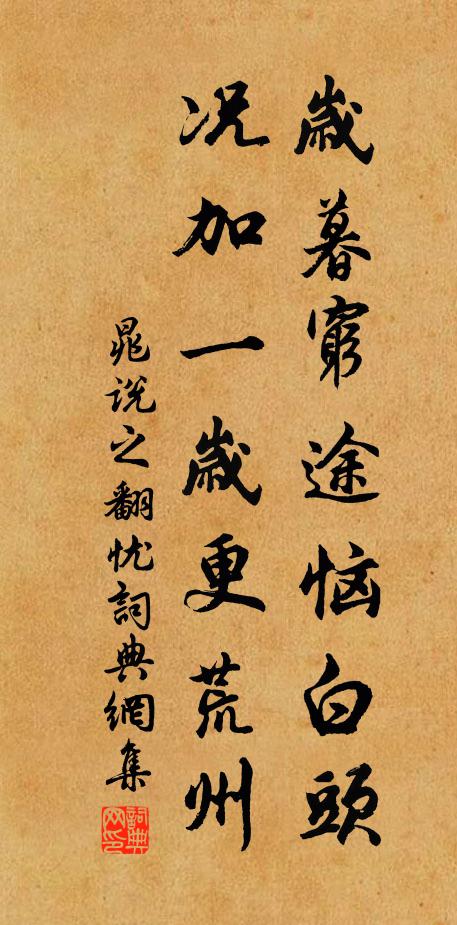 歲暮窮途恼白頭
况加一歲更荒州
晁說之翻忧詞典網集
詞典网印